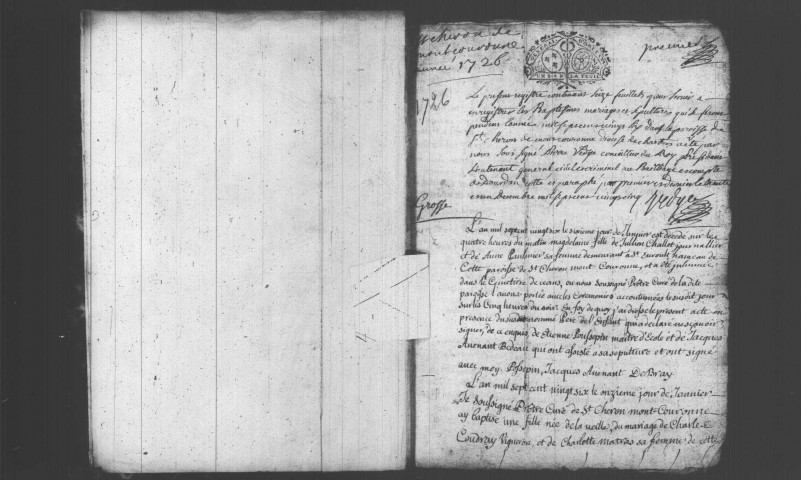 St cheron de
montcouronne
année 1726
premier
1726
Le present registre contenant seize feuillets pour servir a
enregistrer les Baptesmes mariages et sepultures qui se feront
pendant l'année mil sept cens vingt six dans la paroisse de
St. Cheron de montcouronne diocese de chartres a eté par
nous soussigné Pierre Vedye conseiller du Roy president
lieutenant general civil et criminel au Bailliage et comté
de Dourdan cotté et paraphé par premier et dernier le trente
decembre mil sept cens vingt cinq Vedye
Grosse
L'an mil sept cent vingt six le sixieme jour de Janvier est decedé sur les
quatre heures du matin magdelaine fille de Jullien Challot journallier
et de Anne Paulmier sa femme demeurant a St Evroult hameau de
Cette paroisse de St Cheron mont-Couronne, et a été inhumée
dans le Cimetiere de ceans, ou nous soussigné Prêtre Curé de la dite
paroisse l'avons portée avec les Ceremonies accoutumées le susdit jour
sur les Cinq heures du soir En foy de quoy j'ai dressé le present acte en
presence du susnommé Pere de l'Enfant qui a declaré ne sçavoir
signer, de ce enquis, de Etienne Poussepin maitre d'Ecole et de Jacques
Auenant Bedeau qui ont assisté a sa sepulture et ont signé
avec moy. Possepin, Jacques Auenant De Bray
L'an mil sept cent vingt six le onzieme jour de Janvier
Je soussigné Prêtre Curé de St Cheron mont-Couronne
ay baptisé une fille née de la veille, du mariage de Charle
Coudray Vigneron, et de Charlotte matras sa femme de cette